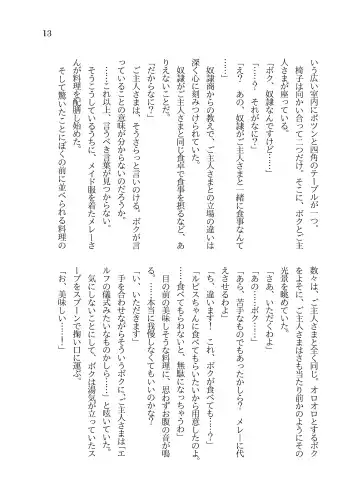 13
いう広い室内にポツンと四角のテーブルが一つ、
椅子は向かい合って二つだけ。そこに、ボクとご主
人さまが座っている。
「ボク、奴隷なんですけど……」
「……？　それがなに？」
「え？　あの、奴隷がご主人さまと一緒に食事なんて
……」
奴隷商からの教えで、ご主人さまとの立場の違いは
深く心に刻みつけられていた。
奴隷がご主人さまと同じ食卓で食事を摂るなど、あ
りえないことだ。
「だからなに？」
ご主人さまは、そうさらっと言いのける。ボクが言
っていることの意味が分からないのだろうか。
……これ以上、言うべき言葉が見つからない。
そうこうしているうちに、メイド服を着たメレーさ
んが料理を配膳し始めた。
そして驚いたことにぼくの前に並べられる料理の
数々は、ご主人さまと全く同じ。オロオロとするボク
をよそに、ご主人さまはさも当たり前かのようにその
光景を眺めていた。
「さあ、いただくわよ」
「あの……ボク……」
「あら、苦手なものでもあったかしら？　メレーに代
えさせるわよ」
「ち、違います！　これ、ボクが食べても……？」
「ルピスちゃんに食べてもらいたいから用意したのよ。
……食べてもらわないと、無駄になっちゃうわ」
目の前の美味しそうな料理に、思わずお腹の音が鳴
る。……本当に我慢しなくてもいいのかな？
「い、いただきます」
手を合わせながらそういうボクに、ご主人さまは「エ
ルフの儀式みたいなものかしら……」と呟いていた。
気にしないことにして、ボクは湯気が立っていたス
ープをスプーンで掬い口に運ぶ。
「お、美味しい……！」